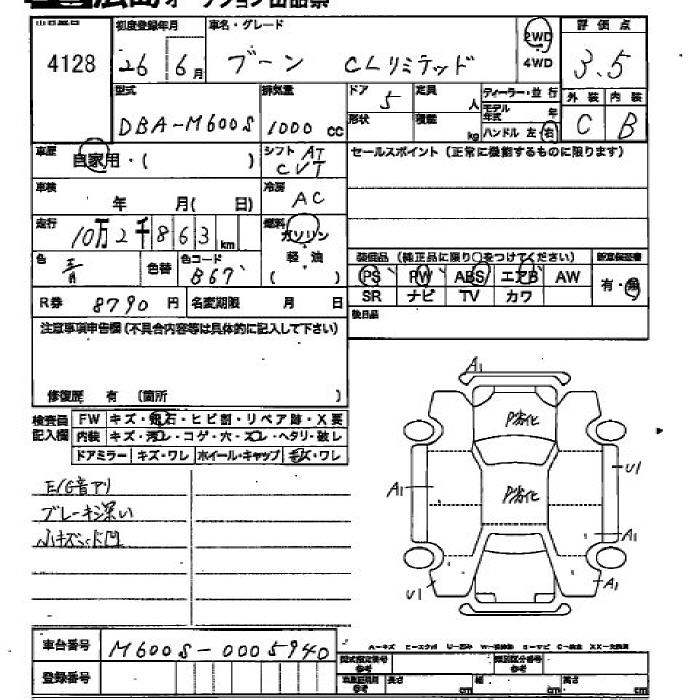 広島オークション出品票
出品番号 初度登録年月 車名・グレード 2WD 評価点
4128 26 6月 ブーン CLリミテッド 4WD 3.5
型式 排気量 ドア 5 定員 人 ディーラー・並行 外装 内装
DBA-M600S 1000cc 形状 積載 kg モデル年式 年 ハンドル 左・右 C B
車歴 自家用・( ) シフト AT CVT セールスポイント(正常に機能するものに限ります)
車検 年 月( 日) 冷房 AC
走行 10万2千863km 燃料 ガソリン
色 青 色替 色コード B67 軽・油 ( ) 装備品(純正品に限り○をつけてください) 新車保証書
PS PW ABS エアB AW 有・無
R券 8790円 名変期限 月 日 SR ナビ TV カワ
注意事項申告欄(不具合内容等は具体的に記入して下さい) 後日品
修復歴 有 (箇所 )
検査員記入欄 FW キズ・飛石・ヒビ割・リペア跡・X要
内装 キズ・汚レ・コゲ・穴・スレ・ヘタリ・破レ
ドアミラー キズ・ワレ ホイール・キャップ キズ・ワレ
E/G音アリ
ブレーキ深い
小キズ小凹
A1
P劣化
U1
A1
P劣化
A1
U1
A1
車台番号 M600S-0005940
A-キズ U-凹み
登録番号 型式指定番号 類別区分番号
参考 長さ cm 幅 cm 高さ cm